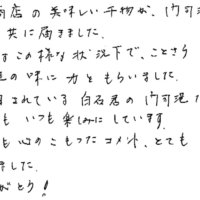 商店の美味しい干物が、門司港
共に届きました。
はこの様な状況下で、ことさら
の味に力をもらいました。
されている白石君の門司港だ
もいつも楽しみにしています。
も心のこもったコメント、とても
ました。
がとう！